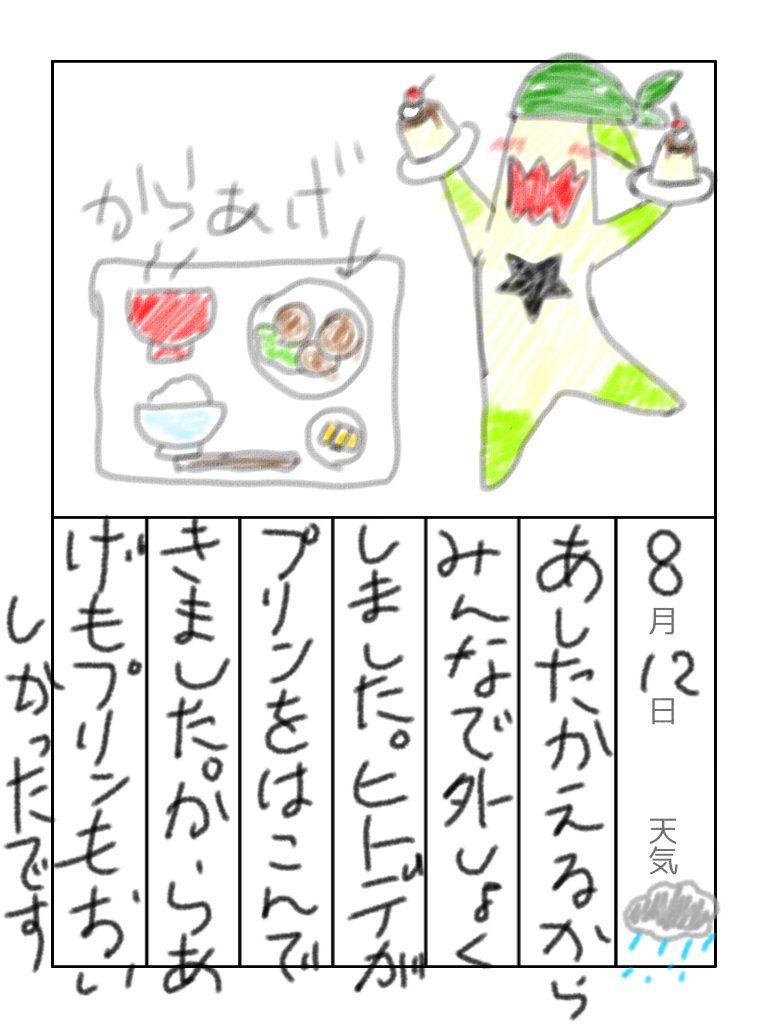 からあげ
8月12日 天気
あしたかえるから
みんなで外しょく
しました。ヒトデが
プリンをはこんで
きました。からあ
げもプリンもおい
しかったです